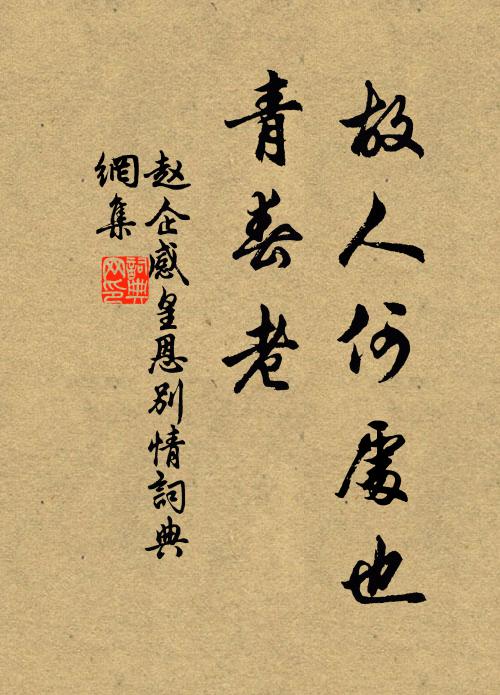 故人何處也
青春老
赵企感皇恩別情詞典
網集
詞典
网印